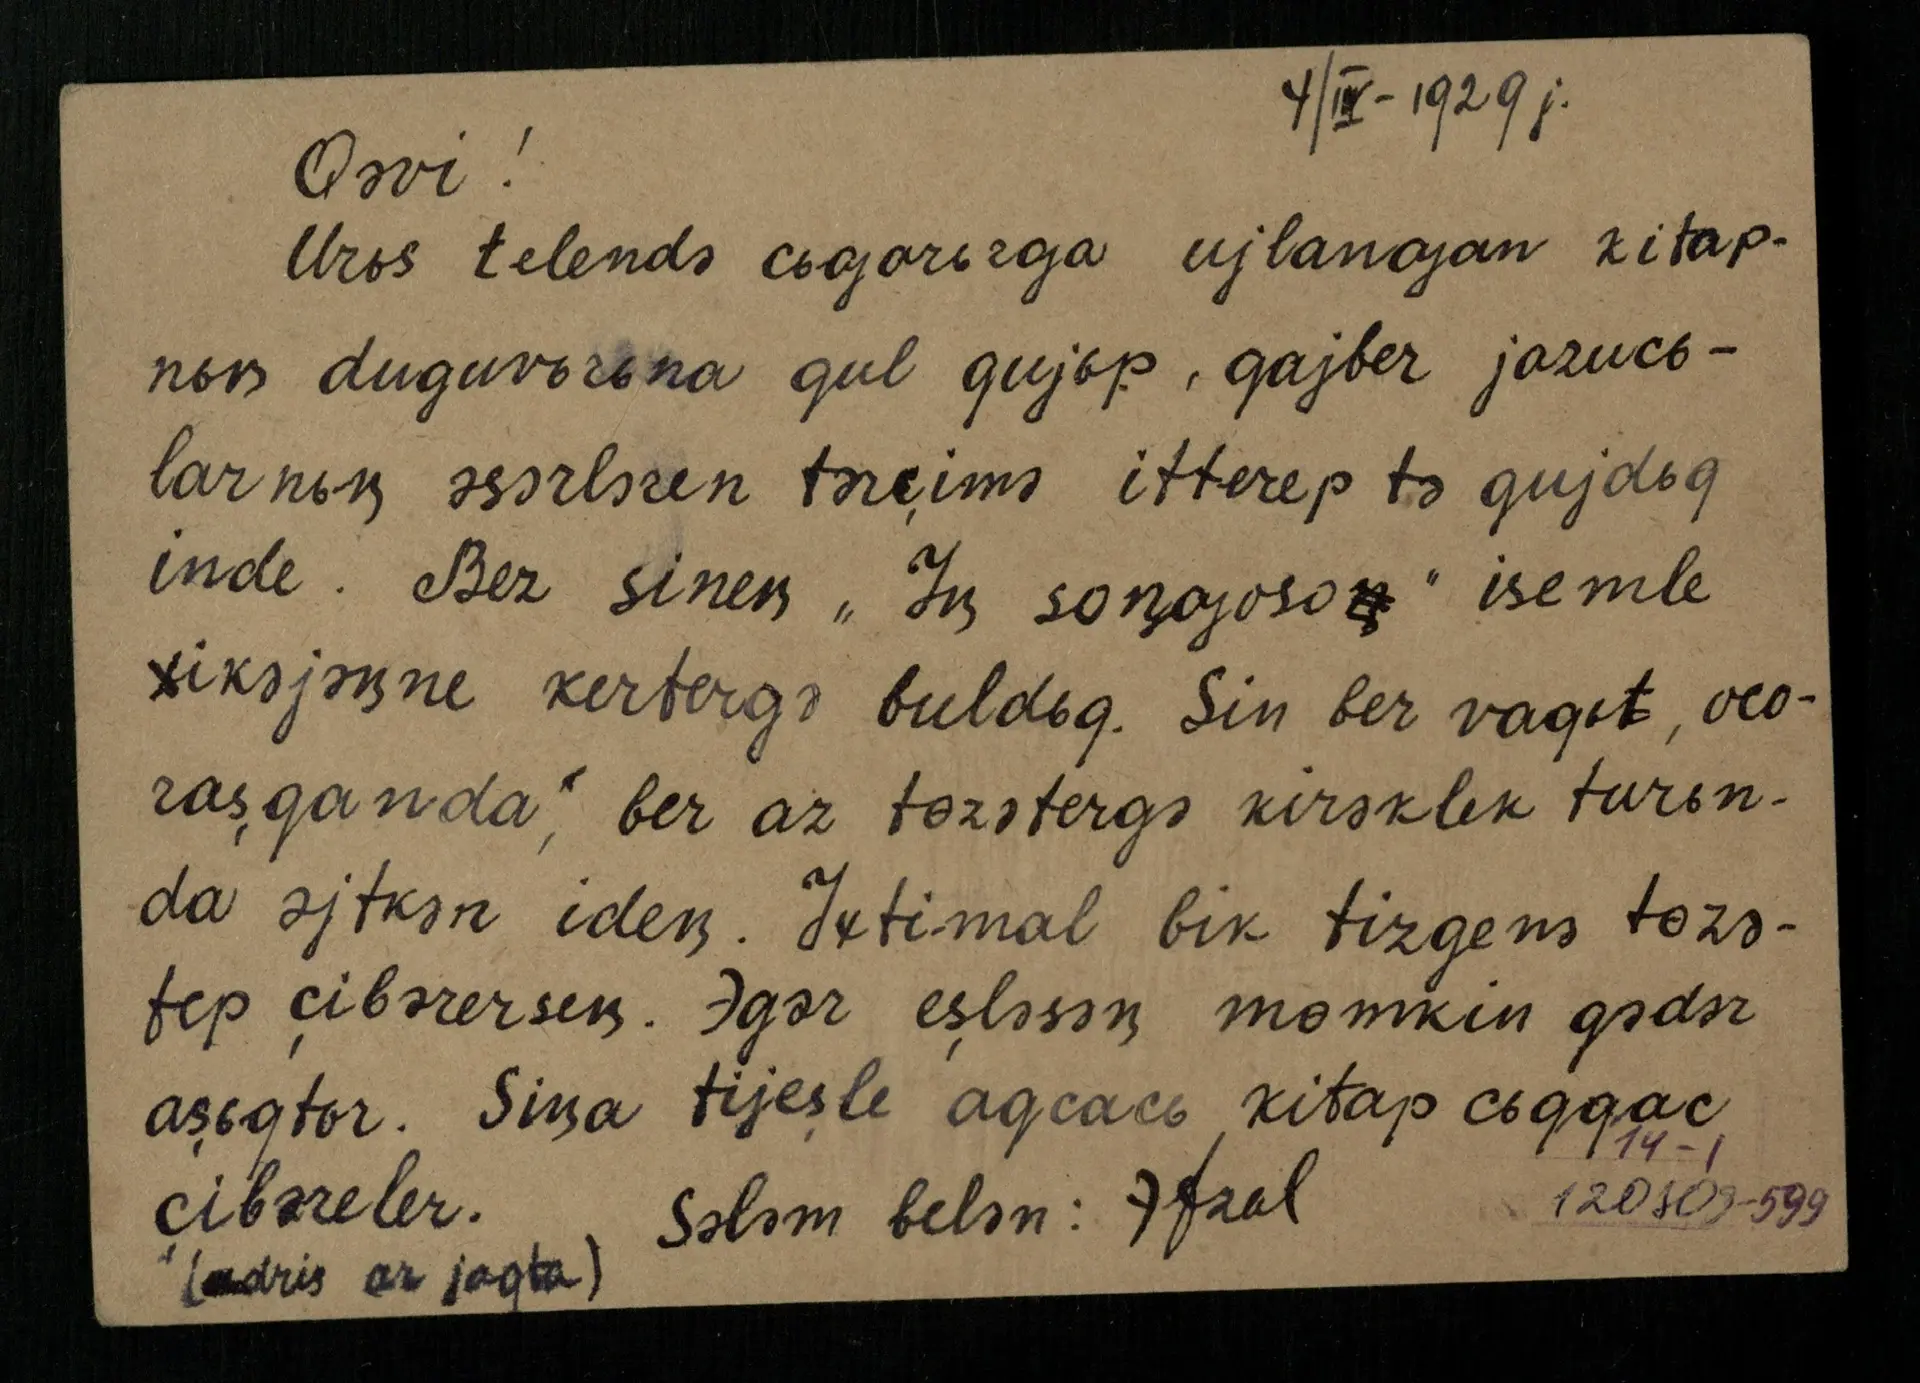 4/IV - 1929 j.
Qəvi!
Urьs telendə cьƣarьrga ujlanƣan kitap-
nьꞑ dugavьrьna qul qujьp, qajber jazucь-
larnьꞑ əsərləren tərçimə itterep tə qujdьq
inde. Bez sineꞑ „Iꞑ soꞑƣoso" isemle
xikəjəꞑne kertergə buldьq. Sin ber vaqьt, oco-
raşqanda, ber az təzətergə kirəklek turьn-
da əjtkən ideꞑ. Ixtimal bik tizgenə təzə-
tep çibərerseꞑ. Əgər eşləsəꞑ mɵmkin qədər
aşьqtьr. Siꞑa tijeşle aqcacь kitap cьqqac
çibəreler. Sələm belən: Əfzal
(adris ar jaqta)
14-1
120809-599